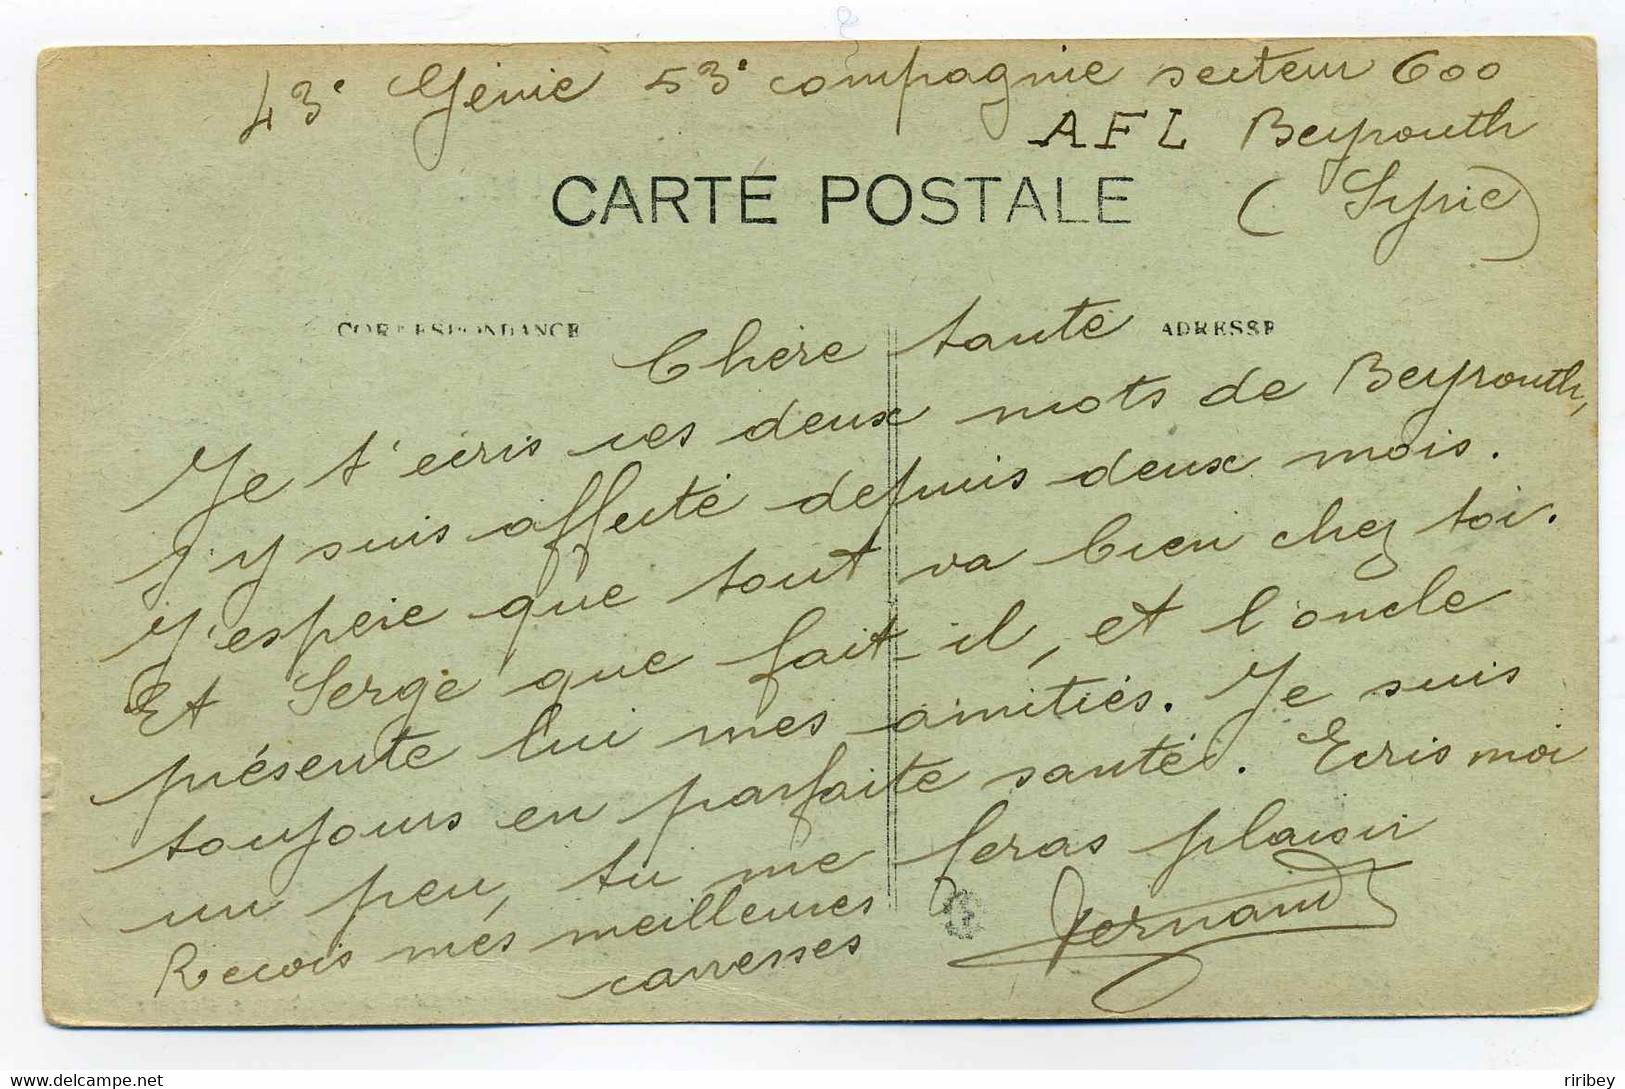 43e Génie 53e compagnie secteur 600
AFL Beyrouth
(Syrie)
CARTE POSTALE
CORRESPONDANCE
ADRESSE
Chère tante
Je t'écris ces deux mots de Beyrouth,
j'y suis affecté depuis deux mois.
J'espère que tout va bien chez toi.
Et Serge que fait-il, et l'oncle
présente lui mes amitiés. Je suis
toujours en parfaite santé. Ecris moi
un peu, tu me feras plaisir
Recois mes meilleures
carresses
Fernand
ribey